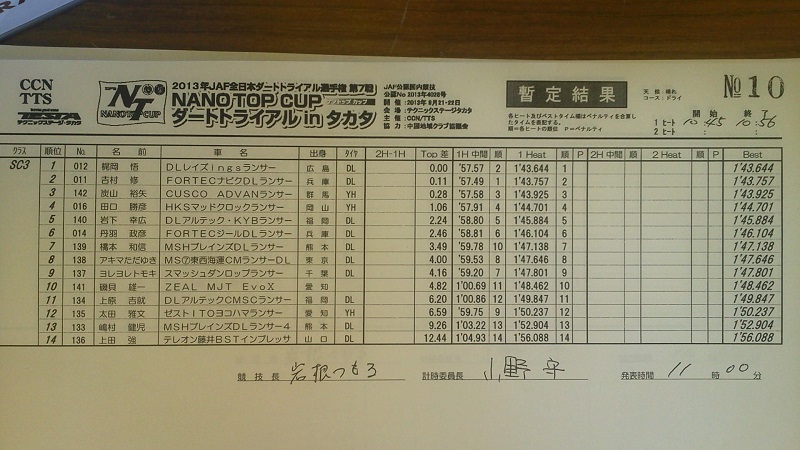 CCN
TTS
TESTA
テクニックステージ・タカタ
NT
NANOTOP CUP
2013年JAF全日本ダートトライアル選手権 第7戦
NANO TOP CUP
ナノトップ カップ
ダートトライアル in タカタ
JAF公認国内競技
公認No 2013年4028号
開催：2013年 9月21-22日
会場：テクニックステージタカタ
主催：CCN/TTS
協力：中国地域クラブ協議会
暫定結果
各ヒート及びベストタイム欄はペナルティを合算し
たタイムを表記する。
順＝各ヒートの順位 P＝ペナルティ
天候：晴れ
コース：ドライ
No 10
開始 終了
1 ヒート 10:45 10:56
2 ヒート
クラス 順位 No. 名前 車名 出身 タイヤ 2H-1H Top差 1H 中間 順 1 Heat 順 P 2H 中間 順 2 Heat 順 P Best
SC3 1 012 梶岡 悟 DLレイズingsランサー 広島 DL 0.00 '57.57 2 1'43.644 1 1'43.644
2 011 吉村 修 FORTECナビクDLランサー 兵庫 DL 0.11 '57.49 1 1'43.757 2 1'43.757
3 142 炭山 裕矢 CUSCO ADVANランサー 群馬 YH 0.28 '57.58 3 1'43.925 3 1'43.925
4 016 田口 勝彦 HKSマッドクロックランサー 岡山 YH 1.06 '57.91 4 1'44.701 4 1'44.701
5 140 岩下 幸広 DLアルテック・KYBランサー 福岡 DL 2.24 '58.80 5 1'45.884 5 1'45.884
6 014 丹羽 政彦 FORTECジールDLランサー 兵庫 DL 2.46 '58.81 6 1'46.104 6 1'46.104
7 139 橋本 和信 MSHブレインズDLランサー 熊本 DL 3.49 '59.78 10 1'47.138 7 1'47.138
8 138 アキマただゆき MS⑦東西海運CMランサーDL 東京 DL 4.00 '59.53 8 1'47.646 8 1'47.646
9 137 ヨレヨレトモキ スマッシュダンロップランサー 千葉 DL 4.16 '59.20 7 1'47.801 9 1'47.801
10 141 磯貝 雄一 ZEAL MJT EvoX 愛知 4.82 1'00.69 11 1'48.462 10 1'48.462
11 134 上原 吉就 DLアルテックCMSCランサー 福岡 DL 6.20 1'00.86 12 1'49.847 11 1'49.847
12 135 太田 雅文 ゼストITOヨコハマランサー 愛知 YH 6.59 '59.75 9 1'50.237 12 1'50.237
13 133 嶋村 健児 MSHブレインズDLランサー4 熊本 DL 9.26 1'03.22 13 1'52.904 13 1'52.904
14 136 上田 強 テレオン藤井BSTインプレッサ 山口 DL 12.44 1'04.93 14 1'56.088 14 1'56.088
競技長 岩根つもる 計時委員長 小野 守 発表時間 11 時 00 分